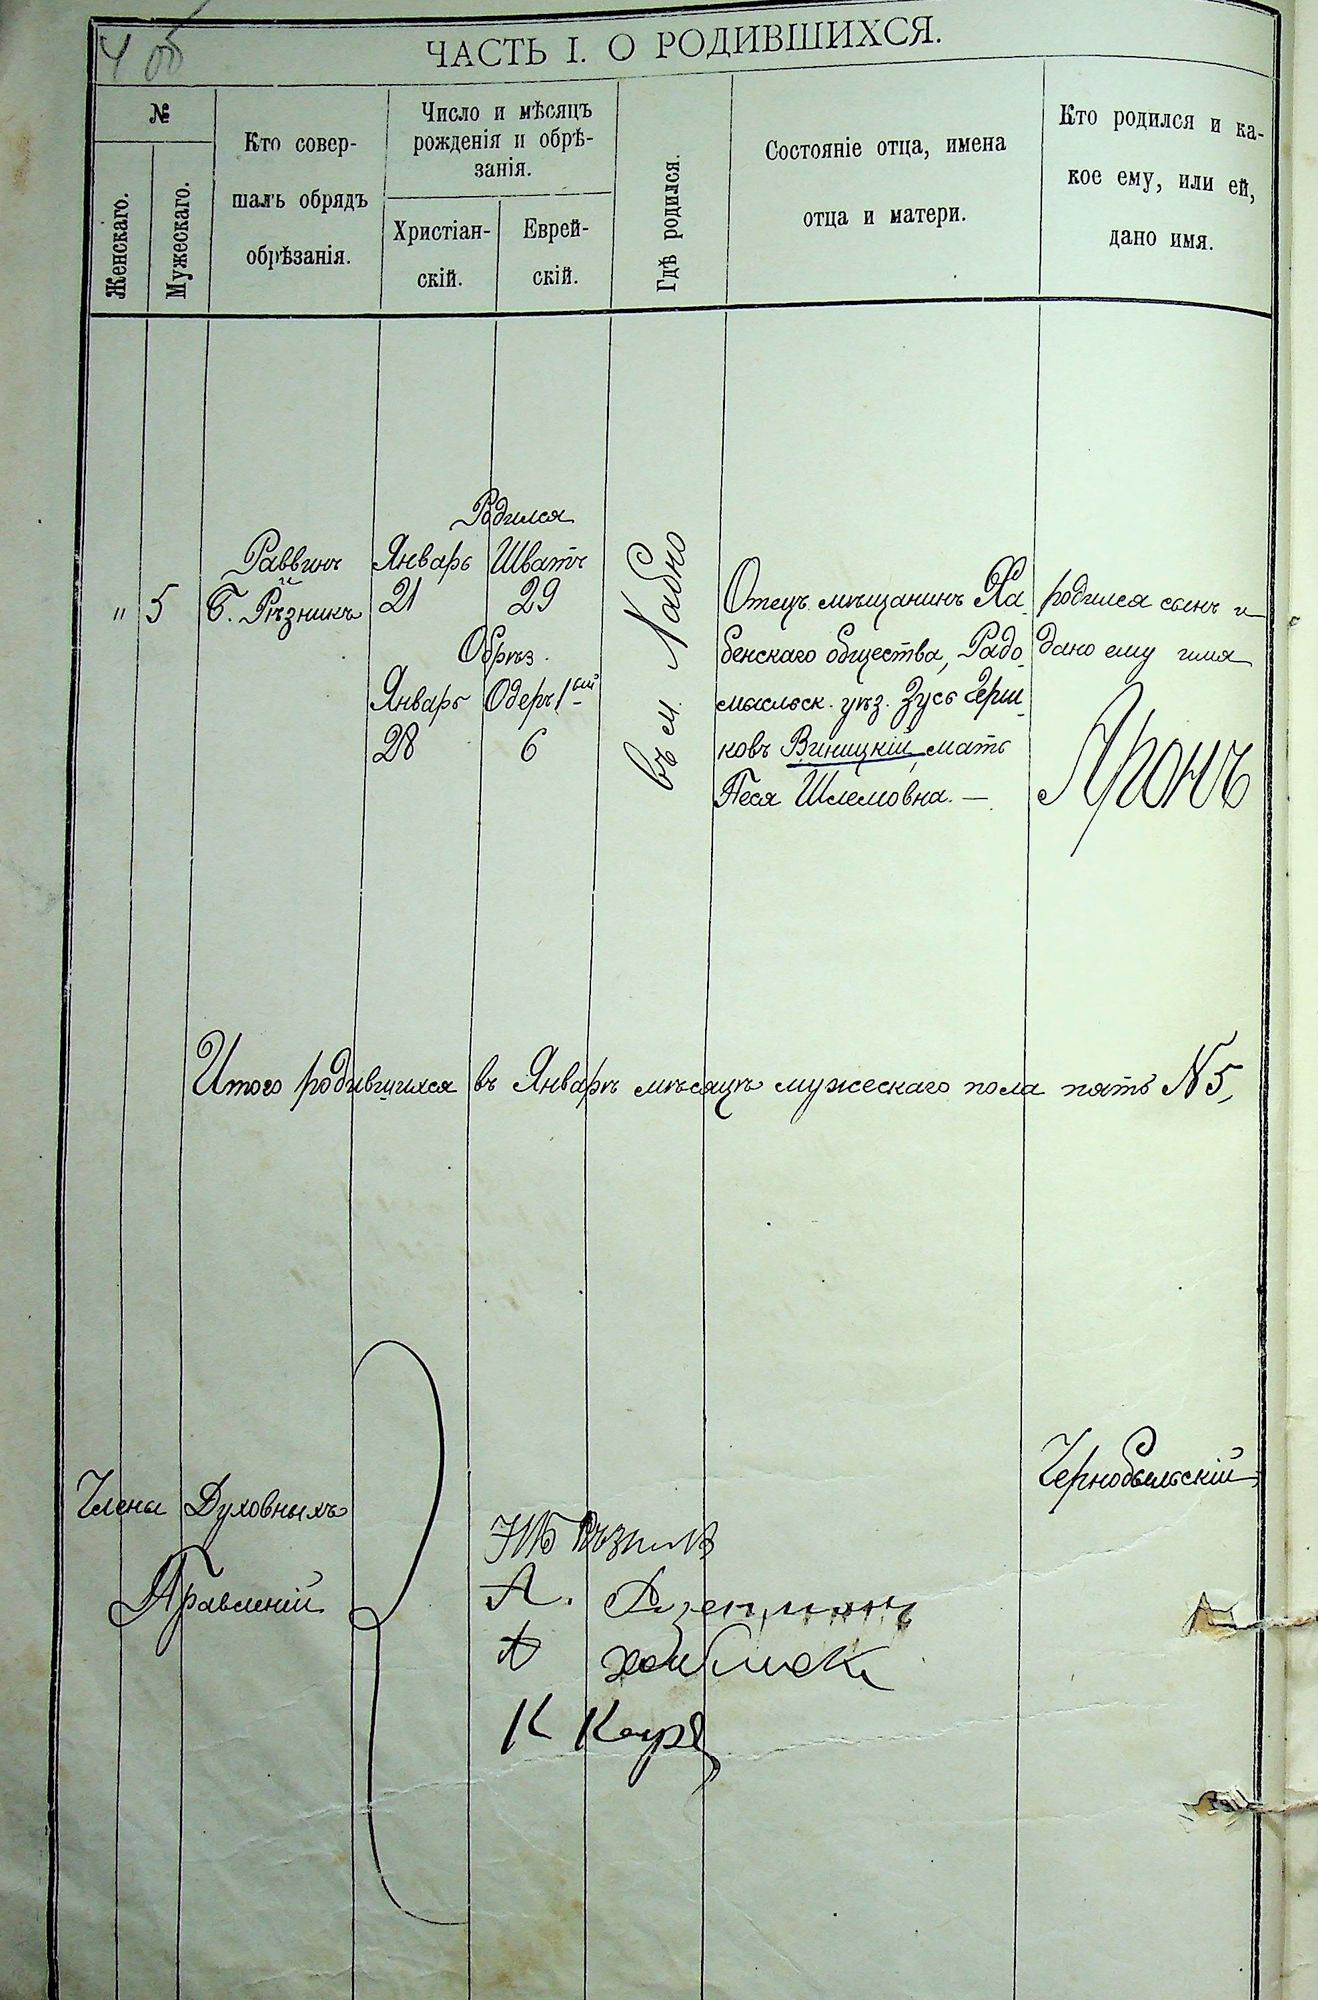 4 об
ЧАСТЬ I. О РОДИВШИХСЯ.
№
Женскаго.
Мужескаго.
Кто совер-
шалъ обрядъ
обрѣзанія.
Число и мѣсяцъ
рожденія и обрѣ-
занія.
Христіан-
скій.
Еврей-
скій.
Гдѣ родился.
Состояніе отца, имена
отца и матери.
Кто родился и ка-
кое ему, или ей,
дано имя.
"
5
Раввинъ
Б. Рѣзникъ
Родился
Январь Шватъ
21 29
Обрѣз.
Январь Одеръ 1ый
28 6
въ м. Хабно
Отецъ мѣщанинъ Ха-
бенскаго общества, Радо-
мысльск. уѣз. Зусь Герш-
ковъ Виницкій, мать
Песя Шлемовна. —
родился сынъ и
дано ему имя
Аронъ
Итого родившихся въ Январѣ мѣсяцѣ мужескаго пола пять N 5,
Чернобыльскій
Члены Духовныхъ
Правленій
Рѣзникъ
А.
А
К